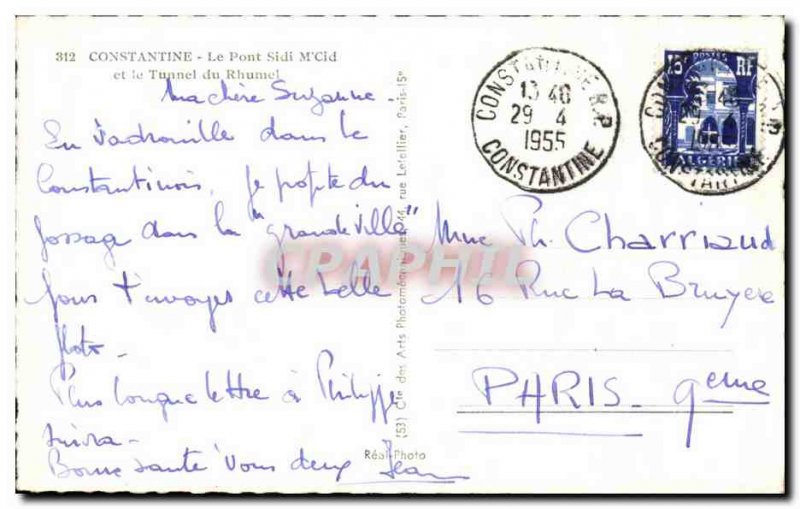 312 CONSTANTINE - Le Pont Sidi M'Cid
et le Tunnel du Rhumel
Ma chère Suzanne -
En vadrouille dans le
Constantinois, je profite du
passage dans la "grande ville"
pour t'envoyer cette belle
photo -
Plus longue lettre à Philippe
suivra -
Bonne santé vous deux Jean
(53) Cie des Arts Photomécaniques, 44, rue Letellier, Paris-15e
Réal-Photo
CONSTANTINE R.P.
13 40
29 4
1955
CONSTANTINE
15F POSTES RF
ALGERIE
CONSTANTINE
Mme Ph. Charriaud
16 Rue La Bruyère
PARIS - 9eme
CPAPHIL